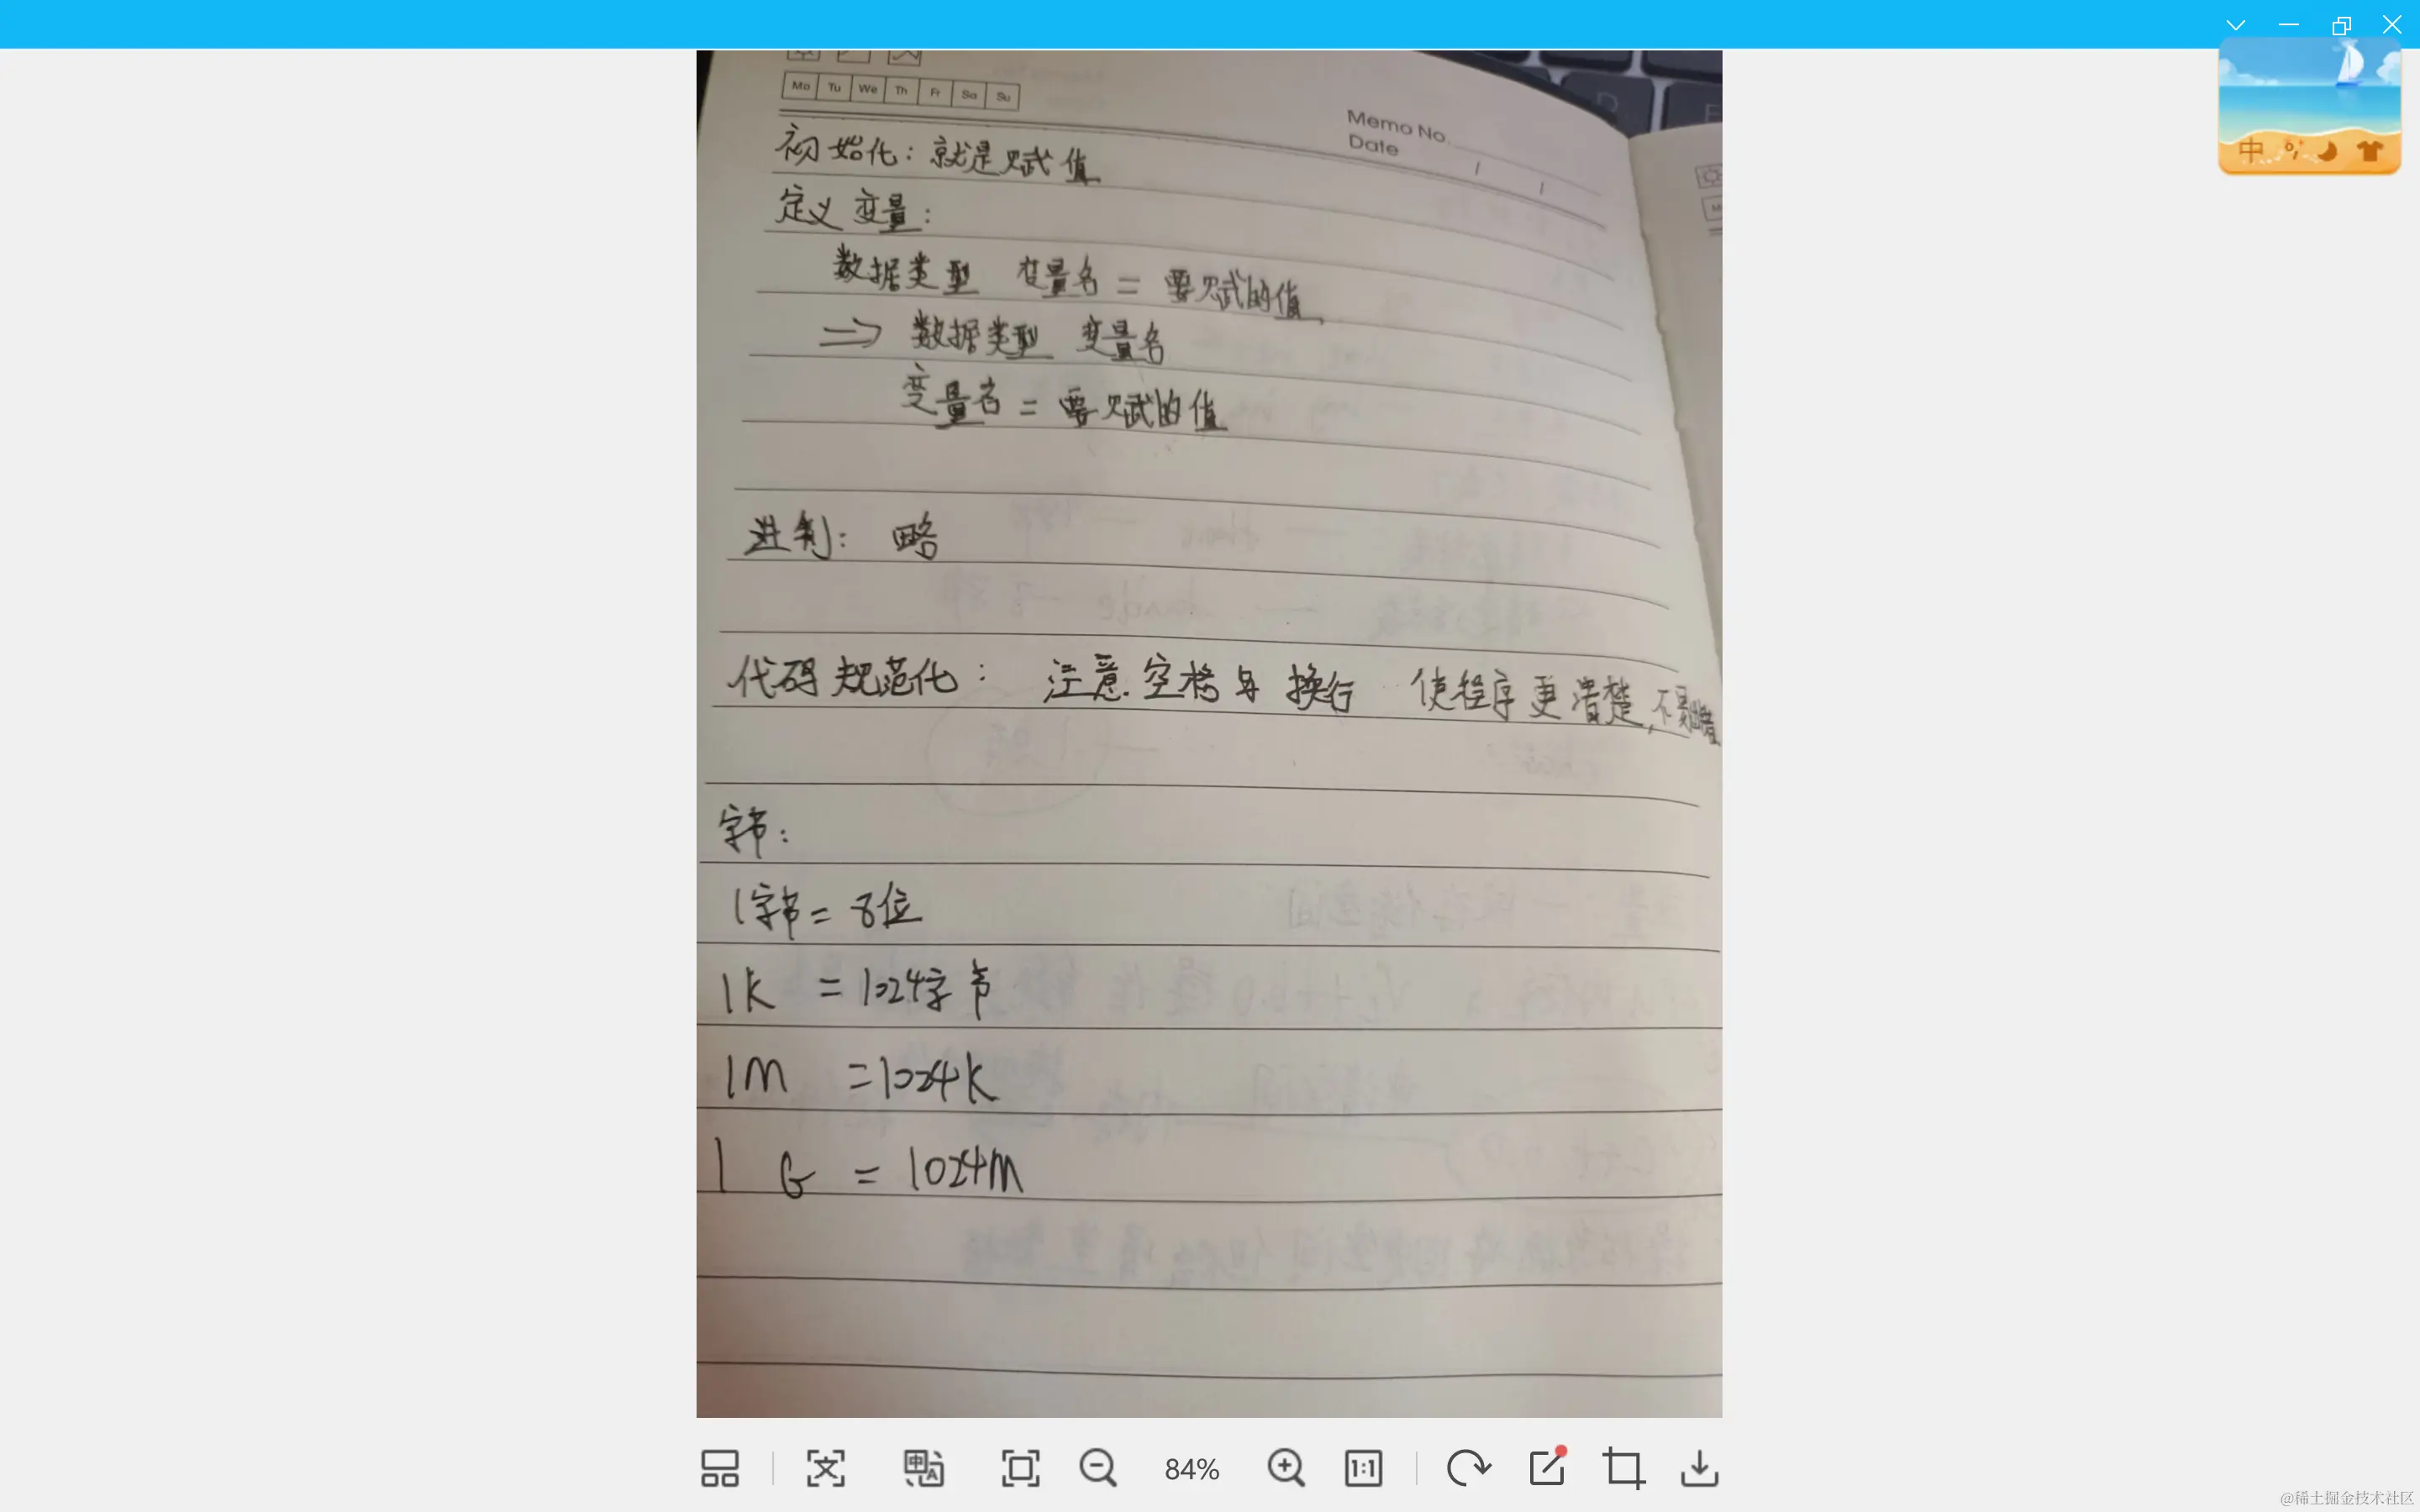 中
Mo Tu We Th Fr Sa Su
Memo No.
Date / /
初始化：就是赋值
定义变量：
数据类型 变量名 = 要赋的值
⇒ 数据类型 变量名
变量名 = 要赋的值
进制： 略
代码规范化： 注意空格与换行 使程序更清楚，不易出错
字节：
1字节 = 8位
1K = 1024字节
1M = 1024K
1 G = 1024M
84%
1:1
@稀土掘金技术社区